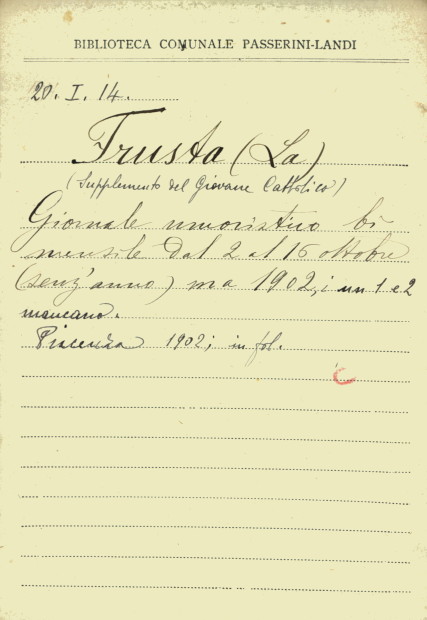 BIBLIOTECA COMUNALE PASSERINI-LANDI
20. I. 14.
Frusta (La)
(Supplemento del Giovane Cattolico)
Giornale umoristico bi
mensile dal 2 al 15 ottobre
(senz'anno) ma 1902; i nn 1 e 2
mancano.
Piacenza 1902; in fol.